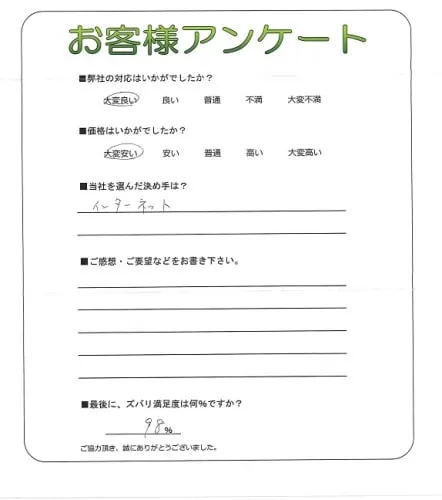 お客様アンケート
■弊社の対応はいかがでしたか？
大変良い 良い 普通 不満 大変不満
■価格はいかがでしたか？
大変安い 安い 普通 高い 大変高い
■当社を選んだ決め手は？
インターネット
■ご感想・ご要望などをお書き下さい。
■最後に、ズバリ満足度は何%ですか？
98%
ご協力頂き、誠にありがとうございました。